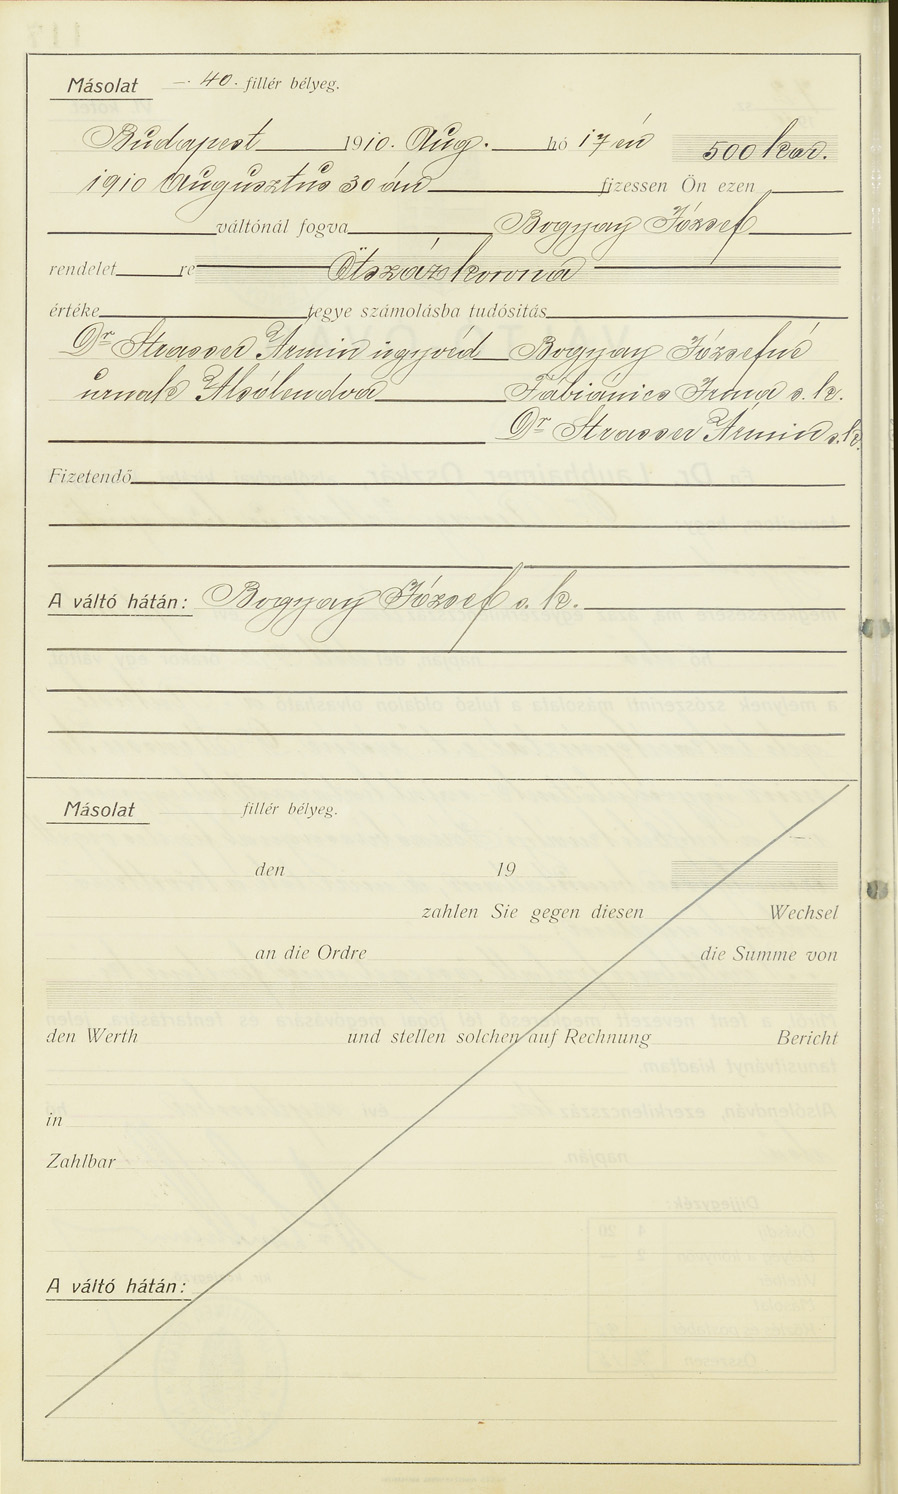 Másolat —. 40. fillér bélyeg.
Budapest 1910. Aug. hó 17 én 500 kor.
1910 Augusztus 30 án fizessen Ön ezen
váltónál fogva Bogyay József
rendelet re Ötszáz korona
értéke tegye számolásba tudósítás
Dr Strasser Ármin ügyvéd Bogyay Józsefné
úrnak Alsólendva Fábiánics Irma s. k.
Dr Strasser Ármin s. k.
Fizetendő
A váltó hátán: Bogyay József s. k.
Másolat fillér bélyeg.
den 19
zahlen Sie gegen diesen Wechsel
an die Ordre die Summe von
den Werth und stellen solchen auf Rechnung Bericht
in
Zahlbar
A váltó hátán: